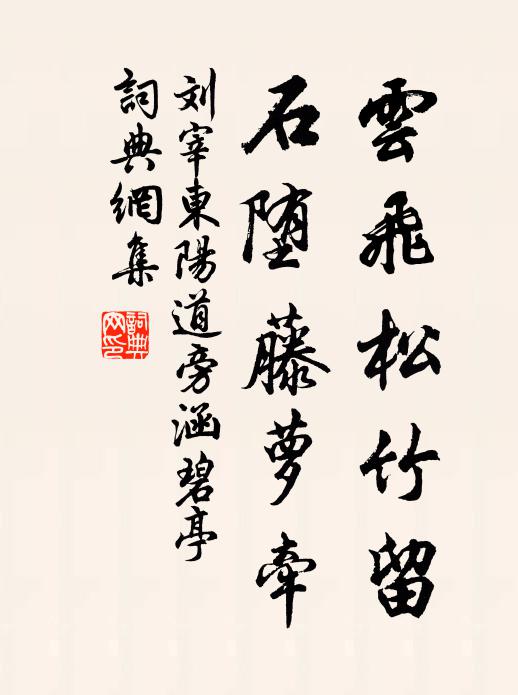 雲飛松竹留
石堕藤萝牵
刘宰東陽道旁涵碧亭
詞典網集
詞典
网印